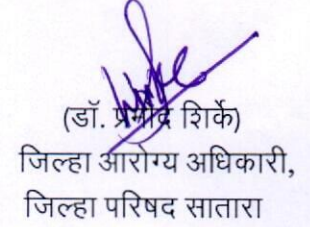 (डॉ. प्रमोद शिर्के)
जिल्हा आरोग्य अधिकारी,
जिल्हा परिषद सातारा